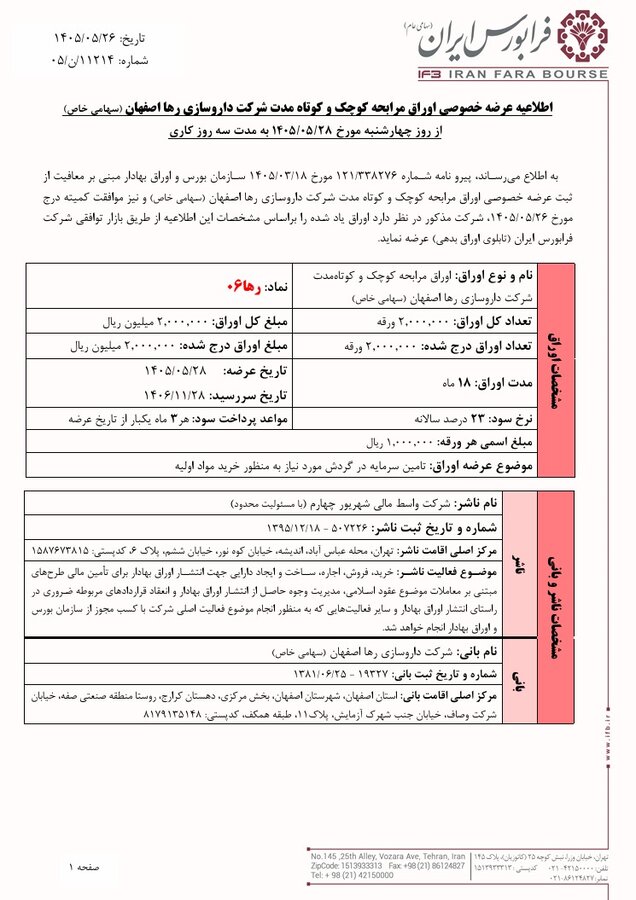 تاریخ: ۱۴۰۵/۰۵/۲۶
شماره: ۱۱۲۱۴/ن/۰۵
فرابورس ایران (سهامی عام)
IFB IRAN FARA BOURSE
اطلاعیه عرضه خصوصی اوراق مرابحه کوچک و کوتاه مدت شرکت داروسازی رها اصفهان (سهامی خاص)
از روز چهارشنبه مورخ ۱۴۰۵/۰۵/۲۸ به مدت سه روز کاری
به اطلاع می‌رساند، پیرو نامه شماره ۱۲۱/۳۳۸۲۷۶ مورخ ۱۴۰۵/۰۳/۱۸ سازمان بورس و اوراق بهادار مبنی بر معافیت از
ثبت عرضه خصوصی اوراق مرابحه کوچک و کوتاه مدت شرکت داروسازی رها اصفهان (سهامی خاص) و نیز موافقت کمیته درج
مورخ ۱۴۰۵/۰۵/۲۶، شرکت مذکور در نظر دارد اوراق یاد شده را براساس مشخصات این اطلاعیه از طریق بازار توافقی شرکت
فرابورس ایران (تابلوی اوراق بدهی) عرضه نماید.
مشخصات اوراق
نام و نوع اوراق: اوراق مرابحه کوچک و کوتاه‌مدت
شرکت داروسازی رها اصفهان (سهامی خاص)
نماد: رها۰۶
تعداد کل اوراق: ۲,۰۰۰,۰۰۰ ورقه
مبلغ کل اوراق: ۲,۰۰۰,۰۰۰ میلیون ریال
تعداد اوراق درج شده: ۲,۰۰۰,۰۰۰ ورقه
مبلغ اوراق درج شده: ۲,۰۰۰,۰۰۰ میلیون ریال
مدت اوراق: ۱۸ ماه
تاریخ عرضه: ۱۴۰۵/۰۵/۲۸
تاریخ سررسید: ۱۴۰۶/۱۱/۲۸
نرخ سود: ۲۳ درصد سالانه
مواعد پرداخت سود: هر۳ ماه یکبار از تاریخ عرضه
مبلغ اسمی هر ورقه: ۱,۰۰۰,۰۰۰ ریال
موضوع عرضه اوراق: تامین سرمایه در گردش مورد نیاز به منظور خرید مواد اولیه
مشخصات ناشر و بانی
ناشر
نام ناشر: شرکت واسط مالی شهریور چهارم (با مسئولیت محدود)
شماره و تاریخ ثبت ناشر: ۵۰۷۲۲۶ - ۱۳۹۵/۱۲/۱۸
مرکز اصلی اقامت ناشر: تهران، محله عباس آباد، اندیشه، خیابان کوه نور، خیابان ششم، پلاک ۶، کدپستی: ۱۵۸۷۶۷۳۸۱۵
موضوع فعالیت ناشر: خرید، فروش، اجاره، ساخت و ایجاد دارایی جهت انتشار اوراق بهادار برای تأمین مالی طرح‌های
مبتنی بر معاملات موضوع عقود اسلامی، مدیریت وجوه حاصل از انتشار اوراق بهادار و انعقاد قراردادهای مربوطه ضروری در
راستای انتشار اوراق بهادار و سایر فعالیت‌هایی که به منظور انجام موضوع فعالیت اصلی شرکت با کسب مجوز از سازمان بورس
و اوراق بهادار انجام خواهد شد.
بانی
نام بانی: شرکت داروسازی رها اصفهان (سهامی خاص)
شماره و تاریخ ثبت بانی: ۱۹۳۲۷ - ۱۳۸۱/۰۶/۲۵
مرکز اصلی اقامت بانی: استان اصفهان، شهرستان اصفهان، بخش مرکزی، دهستان کرارج، روستا منطقه صنعتی صفه، خیابان
شرکت وصاف، خیابان جنب شهرک آزمایش، پلاک۱۱، طبقه همکف، کدپستی: ۸۱۷۹۱۳۵۱۴۸
www.ifb.ir
تهران، خیابان وزرا، نبش کوچه ۲۵ (کاتوزیان)، پلاک ۱۴۵
تلفن: ۴۲۱۵۰۰۰۰-۰۲۱ کدپستی: ۱۵۱۳۹۳۳۳۱۳
نمابر: ۸۶۱۲۴۸۲۷-۰۲۱
No.145 ,25th Alley, Vozara Ave, Tehran, Iran
ZipCode: 1513933313 Fax: +98 (21) 86124827
Tel: + 98 (21) 42150000
صفحه ۱